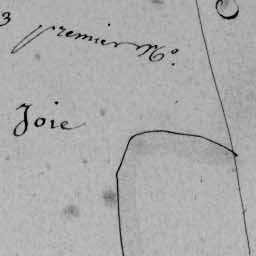 3
premier No.
Joie